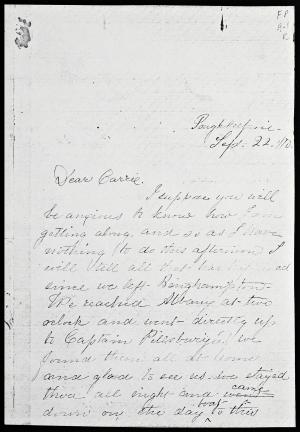 Poughkeepsie
Sep. 22.
Dear Carrie.
I suppose you will
be anxious to know how I am
getting along, and so as I have
nothing to do this afternoon I
will tell all that has happened
since we left Binghampton.
We reached Albany at two
oclock and went directly up
to Captain Pilesburys. we
found them all at home
and glad to see us. we stayed
there all night and went came
down on the day boat to this